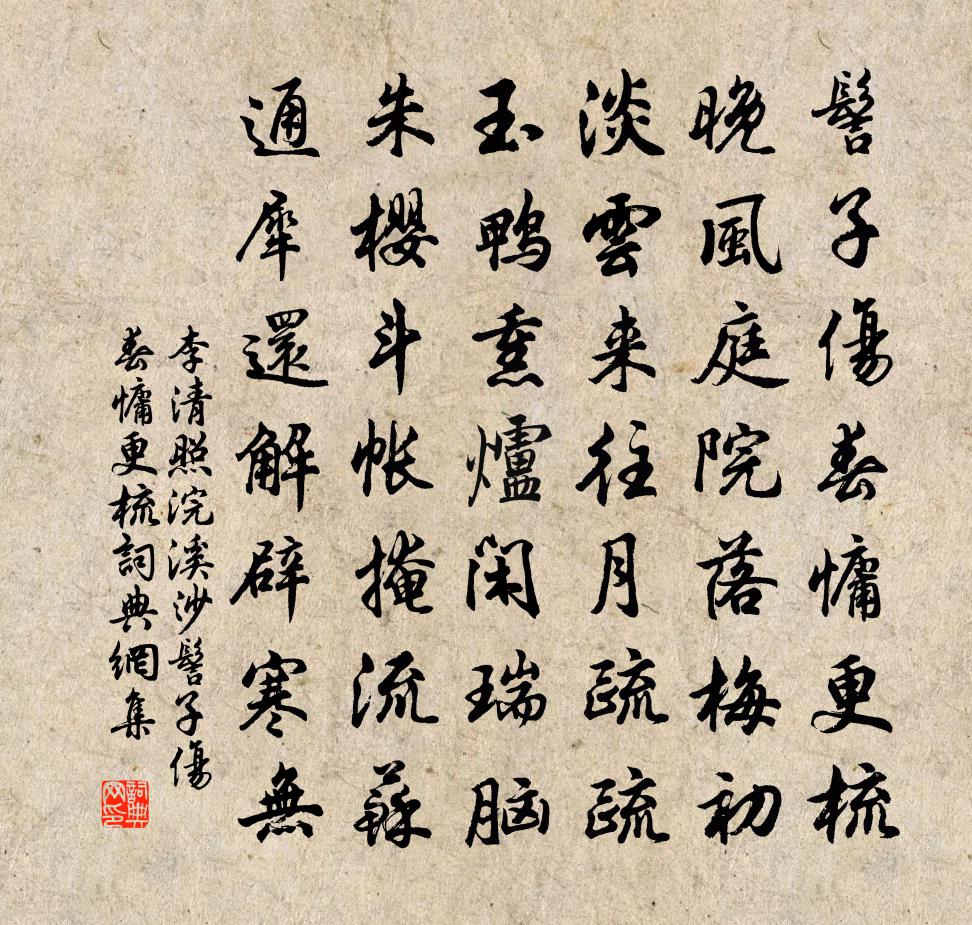 髻子傷春慵更梳
晚風庭院落梅初
淡雲来往月疏疏
玉鴨熏爐閑瑞脑
朱櫻斗帳掩流蘇
通犀還解辟寒無
李清照浣溪沙髻子傷
春慵更梳詞典網集
詞典
网印